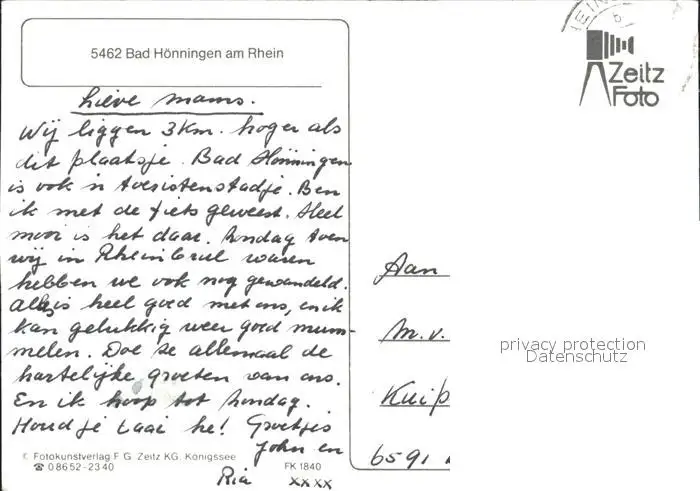 5462 Bad Hönningen am Rhein
Zeitz
Foto
Lieve mams.
Wij liggen 3 km. hoger als
dit plaatsje. Bad Hönningen
is ook 'n toeristenstadje. Ben
ik met de fiets geweest. Heel
mooi is het daar. Zondag toen
wij in Rheinbrul waren
hebben we ook nog gewandeld.
Alles is heel goed met ons, en ik
kan gelukkig weer goed mum-
melen. Doe ze allemaal de
hartelijke groeten van ons.
En ik hoop tot Zondag.
Houd je taai he! Groetjes
John en
Ria xx xx
Aan
M.v.
Kuip
6591
privacy protection
Datenschutz
© Fotokunstverlag F. G. Zeitz KG. Königssee
☎ 0 86 52 - 23 40
FK 1840